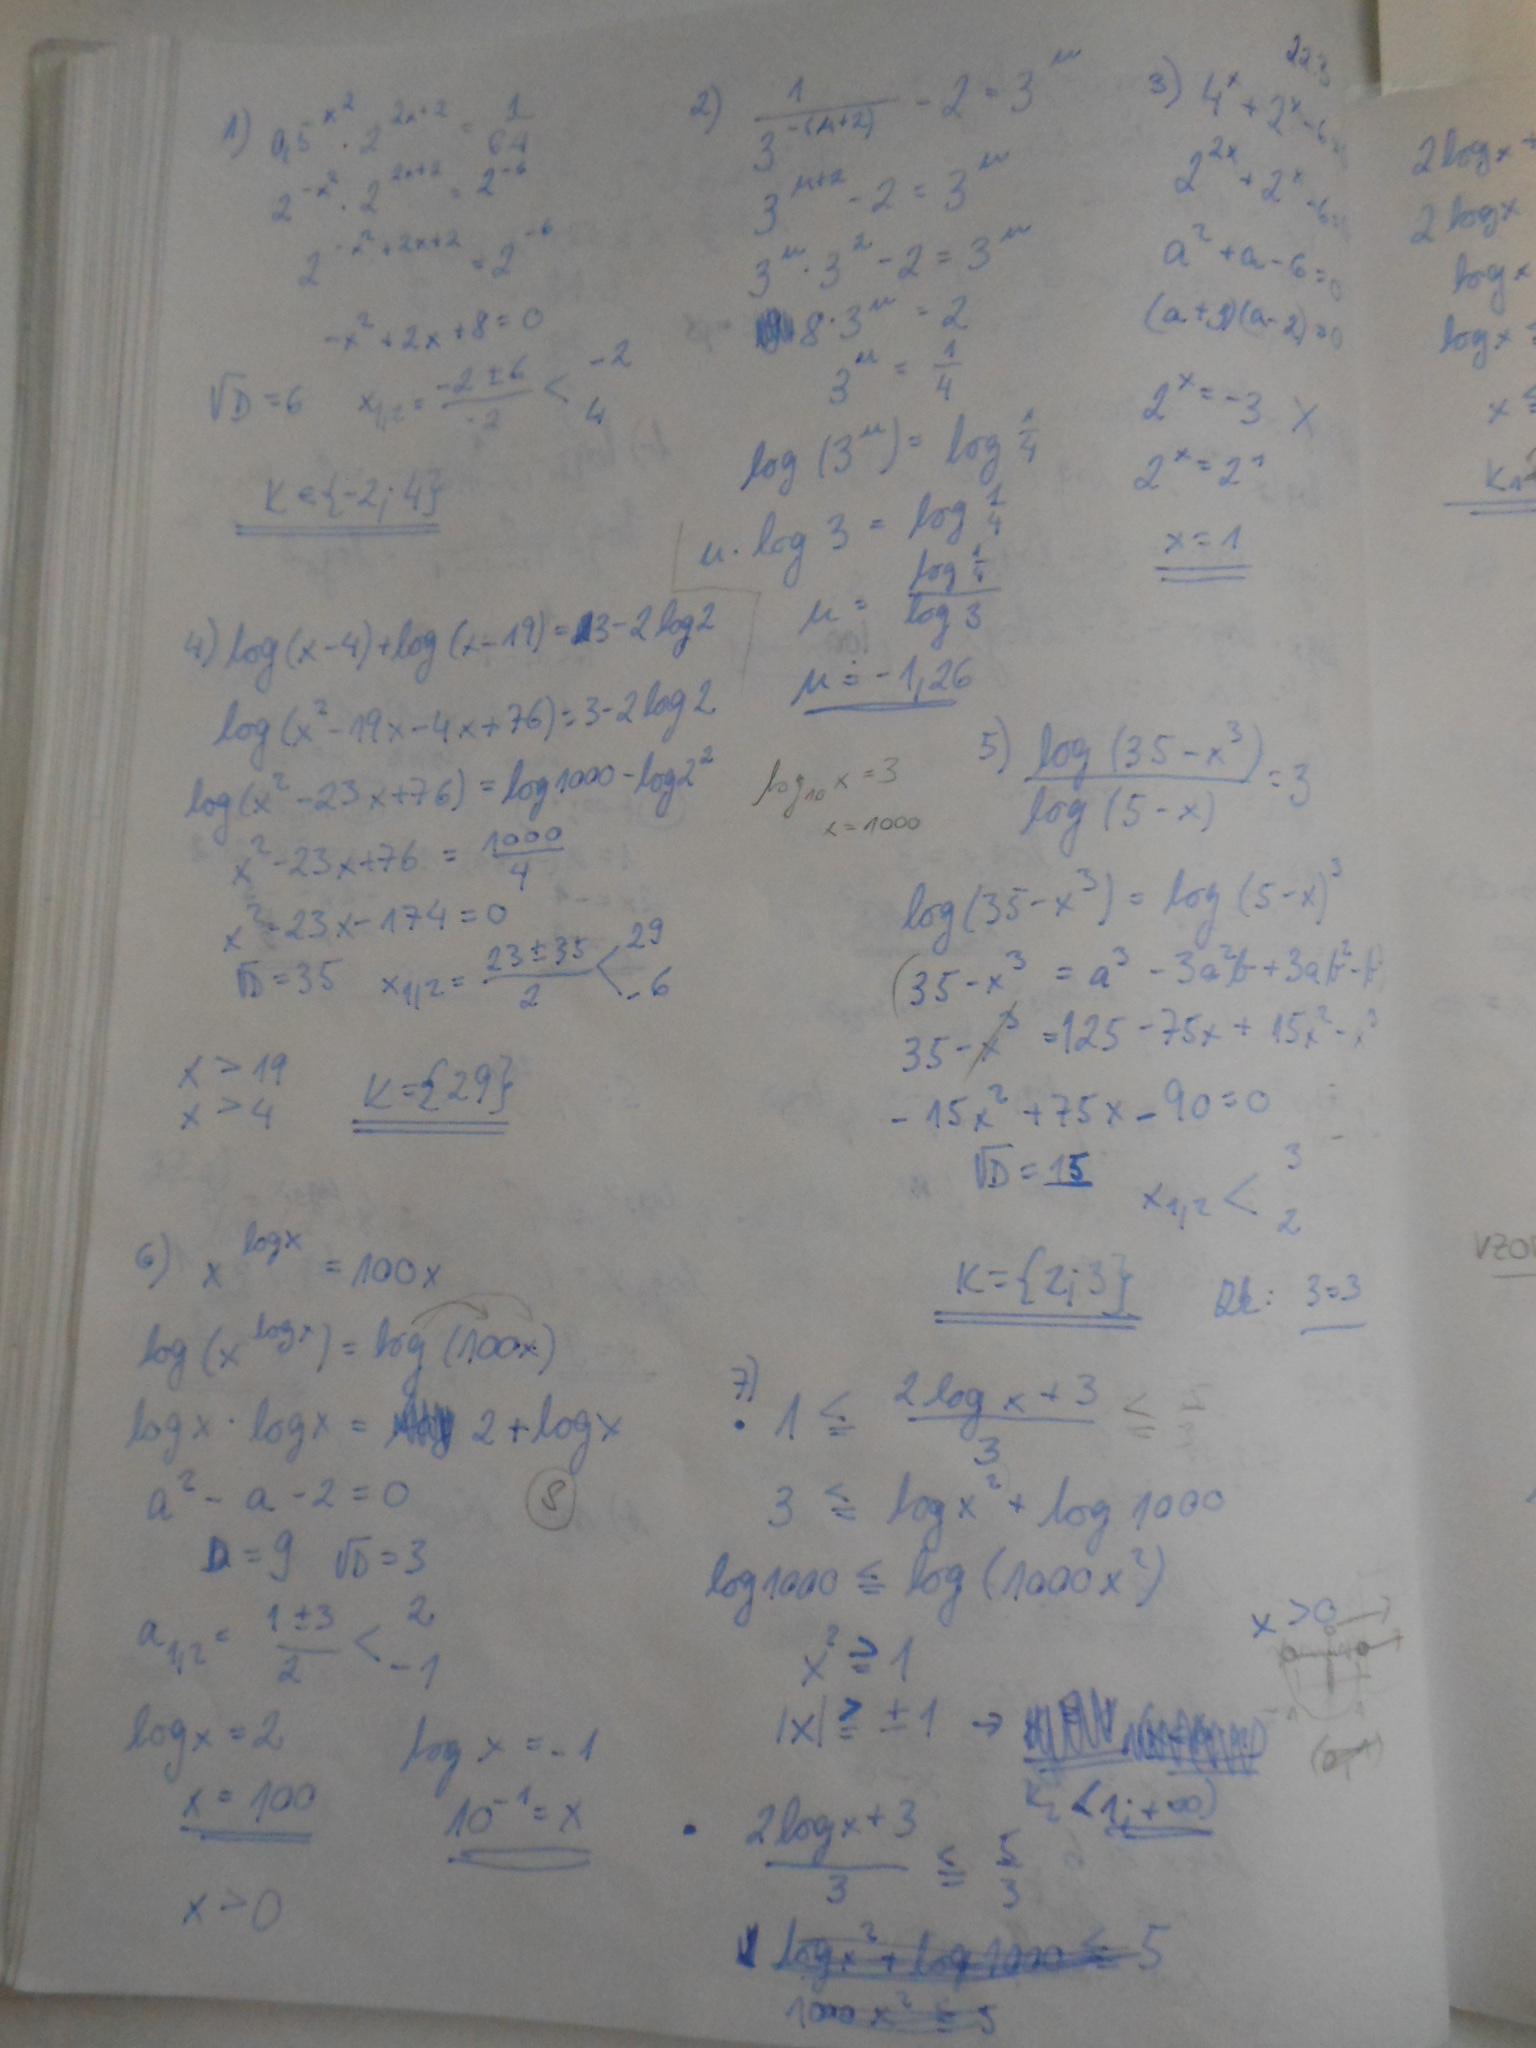 1) 0,5^(x²) · 2^(2x+2) = 1/64
2^(-x²) · 2^(2x+2) = 2^(-6)
2^(-x²+2x+2) = 2^(-6)
-x² + 2x + 8 = 0
√D = 6 x₁,₂ = (-2 ± 6)/(-2) < -2 4
K = {-2; 4}
2) 1/(3^(-(u+2))) - 2 = 3^u
3^(u+2) - 2 = 3^u
3^u · 3² - 2 = 3^u
8 · 3^u = 2
3^u = 1/4
log (3^u) = log 1/4
u · log 3 = log 1/4
u = (log 1/4)/(log 3)
u ≐ -1,26
3) 4^x + 2^x - 6
2^(2x) + 2^x - 6 =
a² + a - 6 = 0
(a+3)(a-2) = 0
2^x = -3 X
2^x = 2¹
x = 1
4) log(x-4) + log(x-19) = 3 - 2 log 2
log(x² - 19x - 4x + 76) = 3 - 2 log 2
log(x² - 23x + 76) = log 1000 - log 2²
x² - 23x + 76 = 1000/4
x² - 23x - 174 = 0
√D = 35 x₁,₂ = (23 ± 35)/2 < 29 -6
x > 19
x > 4
K = {29}
log₁₀ x = 3
x = 1000
5) log (35 - x³)/log (5 - x) = 3
log (35 - x³) = log (5 - x)³
(35 - x³ = a³ - 3a²b + 3ab² - b
35 - x³ = 125 - 75x + 15x² - x³
-15x² + 75x - 90 = 0
√D = 15 x₁,₂ < 3 2
K = {2; 3} Zk: 3 = 3
6) x^(log x) = 100x
log (x^(log x)) = log (100x)
log x · log x = 2 + log x
a² - a - 2 = 0
D = 9 √D = 3
a₁,₂ = (1 ± 3)/2 < 2 -1
log x = 2 log x = -1
x = 100 10⁻¹ = x
x > 0
7) 1 ≤ (2 log x + 3)/3 ≤ 5/3
3 ≤ log x² + log 1000
log 1000 ≤ log (1000x²)
x² ≥ 1
|x| ≥ ± 1 →
x > 0
K₂ <1; +∞)
(2 log x + 3)/3 ≤ 5/3
log x² + log 1000 ≤ 5
1000 x² ≤ 5
2 log x +
2 log x
log x
log x =
x ≤
K₁